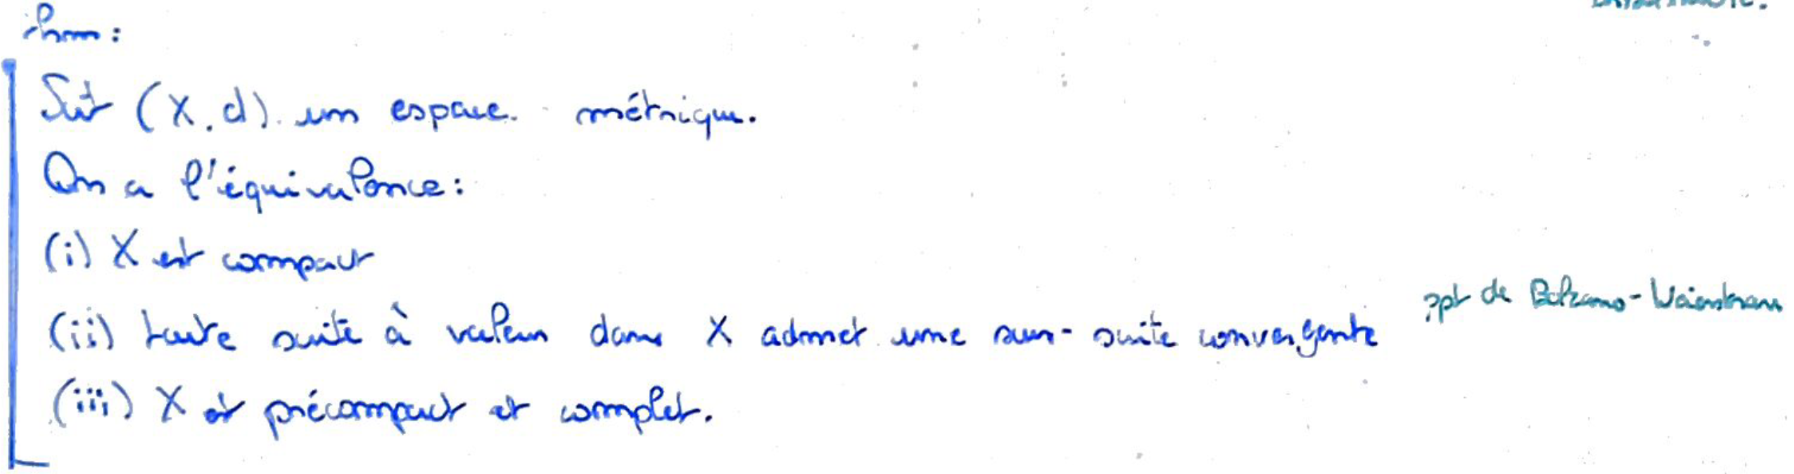 thm :
Soit (X, d) un espace métrique.
On a l'équivalence :
(i) X est compact
ppt de Bolzano-Weierstrass
(ii) toute suite à valeur dans X admet une sous-suite convergente
(iii) X est précompact et complet.